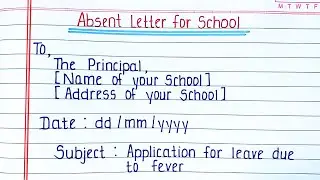 M T W T F
Absent Letter for School
To,
The Principal,
[Name of your School]
[Address of your School]
Date : dd/mm/yyyy
Subject : Application for leave due
to fever